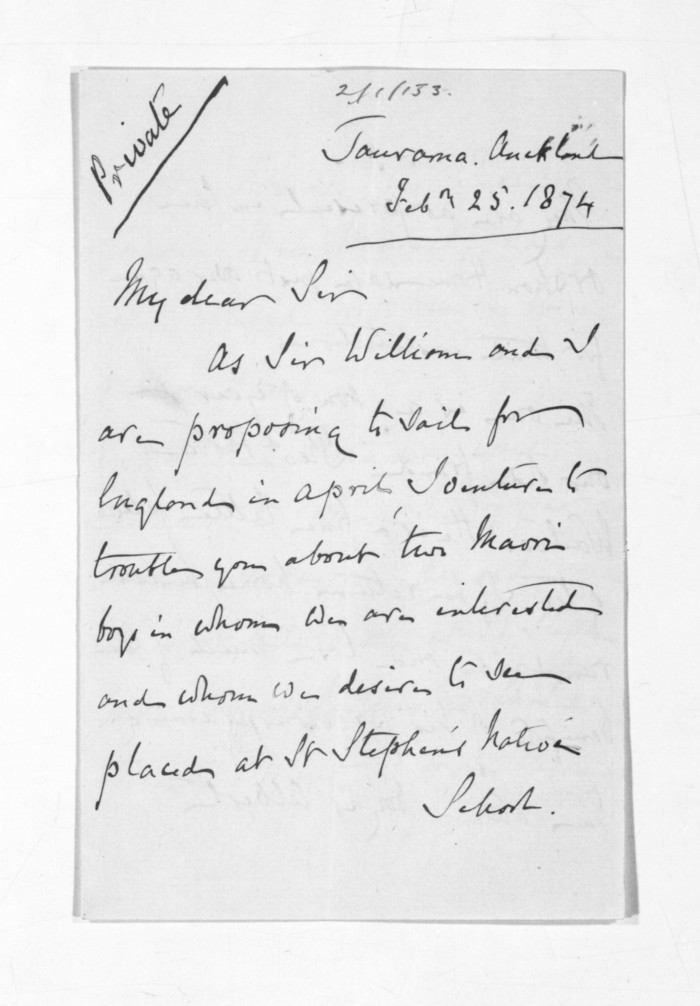 2/1/133.
Private
Taurarua. Auckland
Feby 25. 1874
My dear Sir
As Sir William and I
are proposing to sail for
England in April, I venture to
trouble you about two Maori
boys in whom we are interested
and whom we desire to see
placed at St Stephen's Native
School.